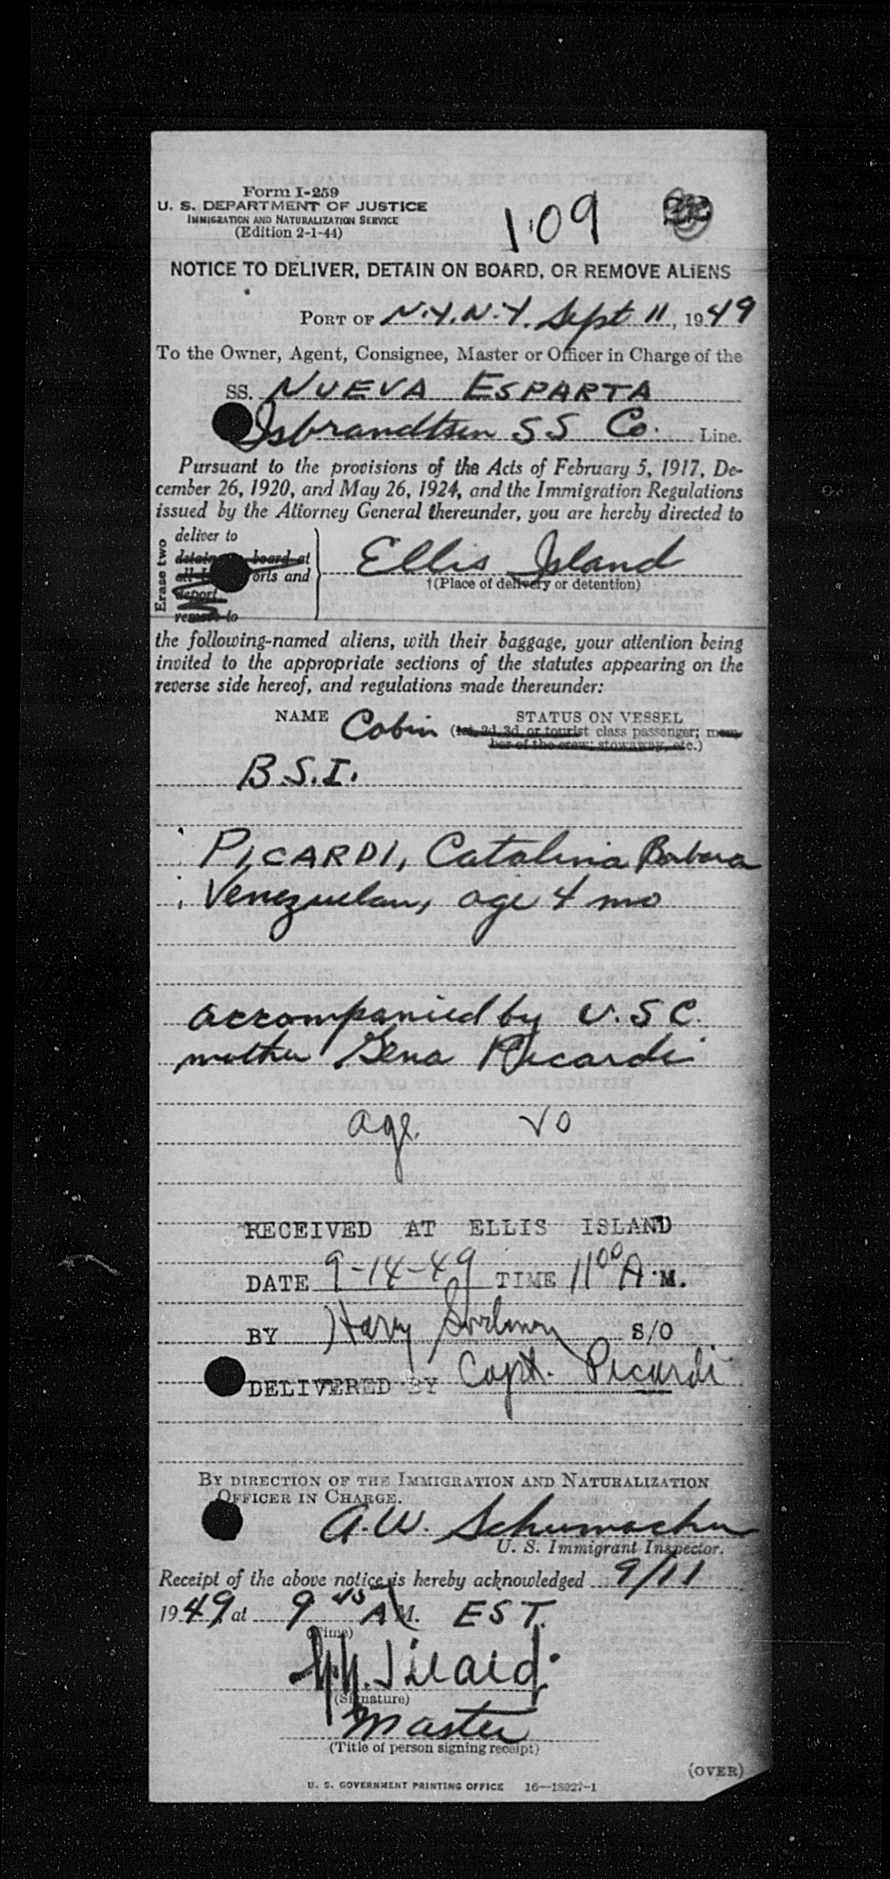 Form I-259
U. S. DEPARTMENT OF JUSTICE
IMMIGRATION AND NATURALIZATION SERVICE
(Edition 2-1-44)
109
NOTICE TO DELIVER, DETAIN ON BOARD, OR REMOVE ALIENS
PORT OF N.Y. N.Y. Sept 11, 1949
To the Owner, Agent, Consignee, Master or Officer in Charge of the
SS. NUEVA ESPARTA
Isbrandtsen SS Co. Line.
Pursuant to the provisions of the Acts of February 5, 1917, De-
cember 26, 1920, and May 26, 1924, and the Immigration Regulations
issued by the Attorney General thereunder, you are hereby directed to
Erase two
deliver to
detain board at
orts and
deport
remove to
Ellis Island
†(Place of delivery or detention)
the following-named aliens, with their baggage, your attention being
invited to the appropriate sections of the statutes appearing on the
reverse side hereof, and regulations made thereunder:
NAME Cabin STATUS ON VESSEL
(1st, 2d, 3d, or tourist class passenger; mem-
ber of the crew; stowaway, etc.)
B.S.I.
PICARDI, Catalina Barbara
Venezuelan, age 4 mo
accompanied by U.S.C.
mother Gena Picardi
age
RECEIVED AT ELLIS ISLAND
DATE 9-14-49 TIME 11 00 A.M.
BY Harry S/O
DELIVERED BY Capt. Picardi
BY DIRECTION OF THE IMMIGRATION AND NATURALIZATION
OFFICER IN CHARGE.
A.W. Schumacher
U. S. Immigrant Inspector.
Receipt of the above notice is hereby acknowledged 9/11
1949, at 9 45 A.M. EST.
(Time)
(Signature)
Master
(Title of person signing receipt)
(OVER)
U. S. GOVERNMENT PRINTING OFFICE 16—18027-1